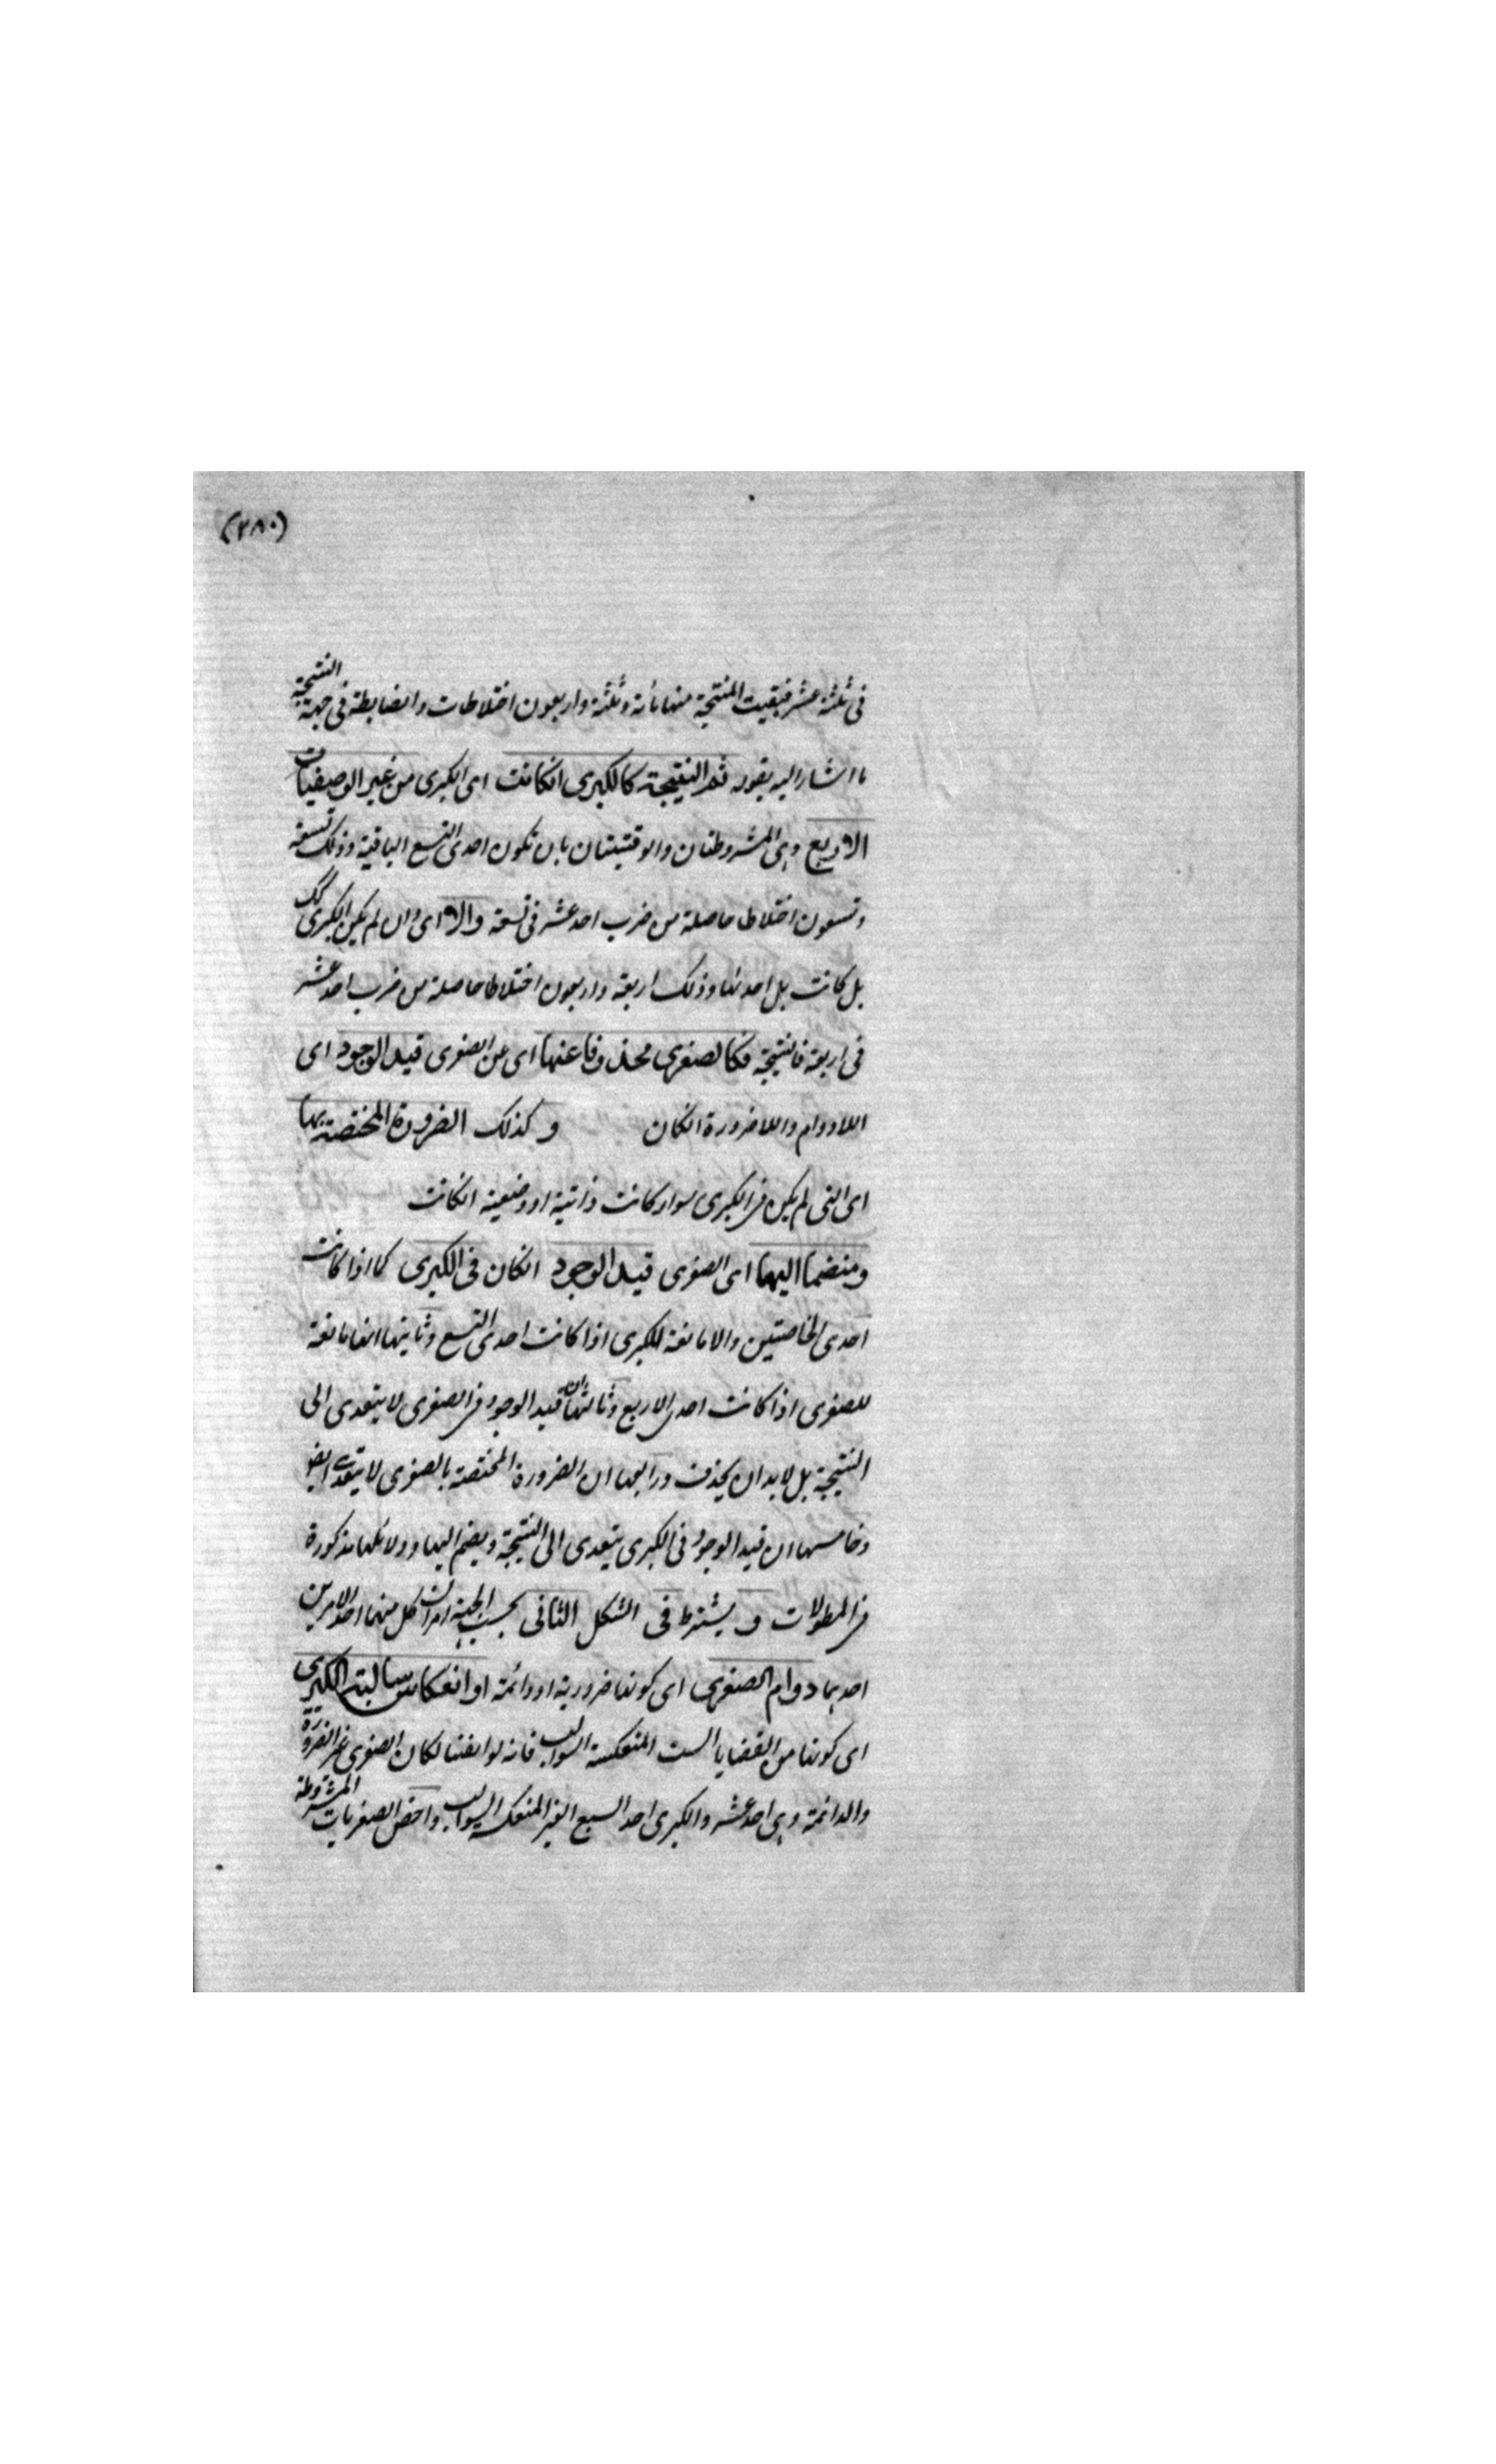 (٢٨٠)
فى ثلثة عشر فبقيت المنتجة منها مائة وثلثة واربعون اختلاطات والضابطة فى جهة النتيجة
ما اشار اليه بقوله ثم النتيجة كالكبرى انكانت اى الكبرى من غير الوصفيات
الاربع وهى المشروطتان والوقتيتان بان تكون احدى التسع الباقية وذلك تسعة
وتسعون اختلاطا حاصلة من ضرب احد عشر فى تسعة والا اى وان لم يكن الكبرى كك
بل كانت بل احدٮها وذلك اربعة واربعون اختلاطا حاصلة من ضرب احد عشر
فى اربعة فالنتيجة فكالصغرى محذوفا عنها اى عن الصغرى قيد الوجود اى
اللادوام واللاضرورة انكان وكذلك الضرورة المختصة بها
اى التى لم يكن فى الكبرى سواء كانت ذاتية او وصفية انكانت
ومنضما اليها اى الصغرى قيد الوجود انكان فى الكبرى كما اذا كانت
احدى الخاصتين والا تابعة للكبرى اذا كانت احدى التسع وثانيها انها تابعة
للصغرى اذا كانت احدى الاربع وثالثها ان قيد الوجود فى الصغرى لا يتعدى الى
النتيجة بل لابد ان يحذف ورابعها ان الضرورة المختصة بالصغرى لا يتعدى ايضا
وخامسها ان قيد الوجود فى الكبرى يتعدى الى النتيجة ويضم اليها ودلائلها مذكورة
فى المطولات ويشترط فى الشكل الثانى بحسب الجهة امران كل منهما احد الامرين
احدهما دوام الصغرى اى كونها ضرورية او دائمة او انعكاس سالبة الكبرى
اى كونها من القضايا الست المنعكسة السوالب فانه لو انتفيا لكان الصغرى غير الضرورة
والدائمة وهى احد عشر والكبرى احد السبع الغير المنعكسة السوالب واخص الصغريات المشروطة